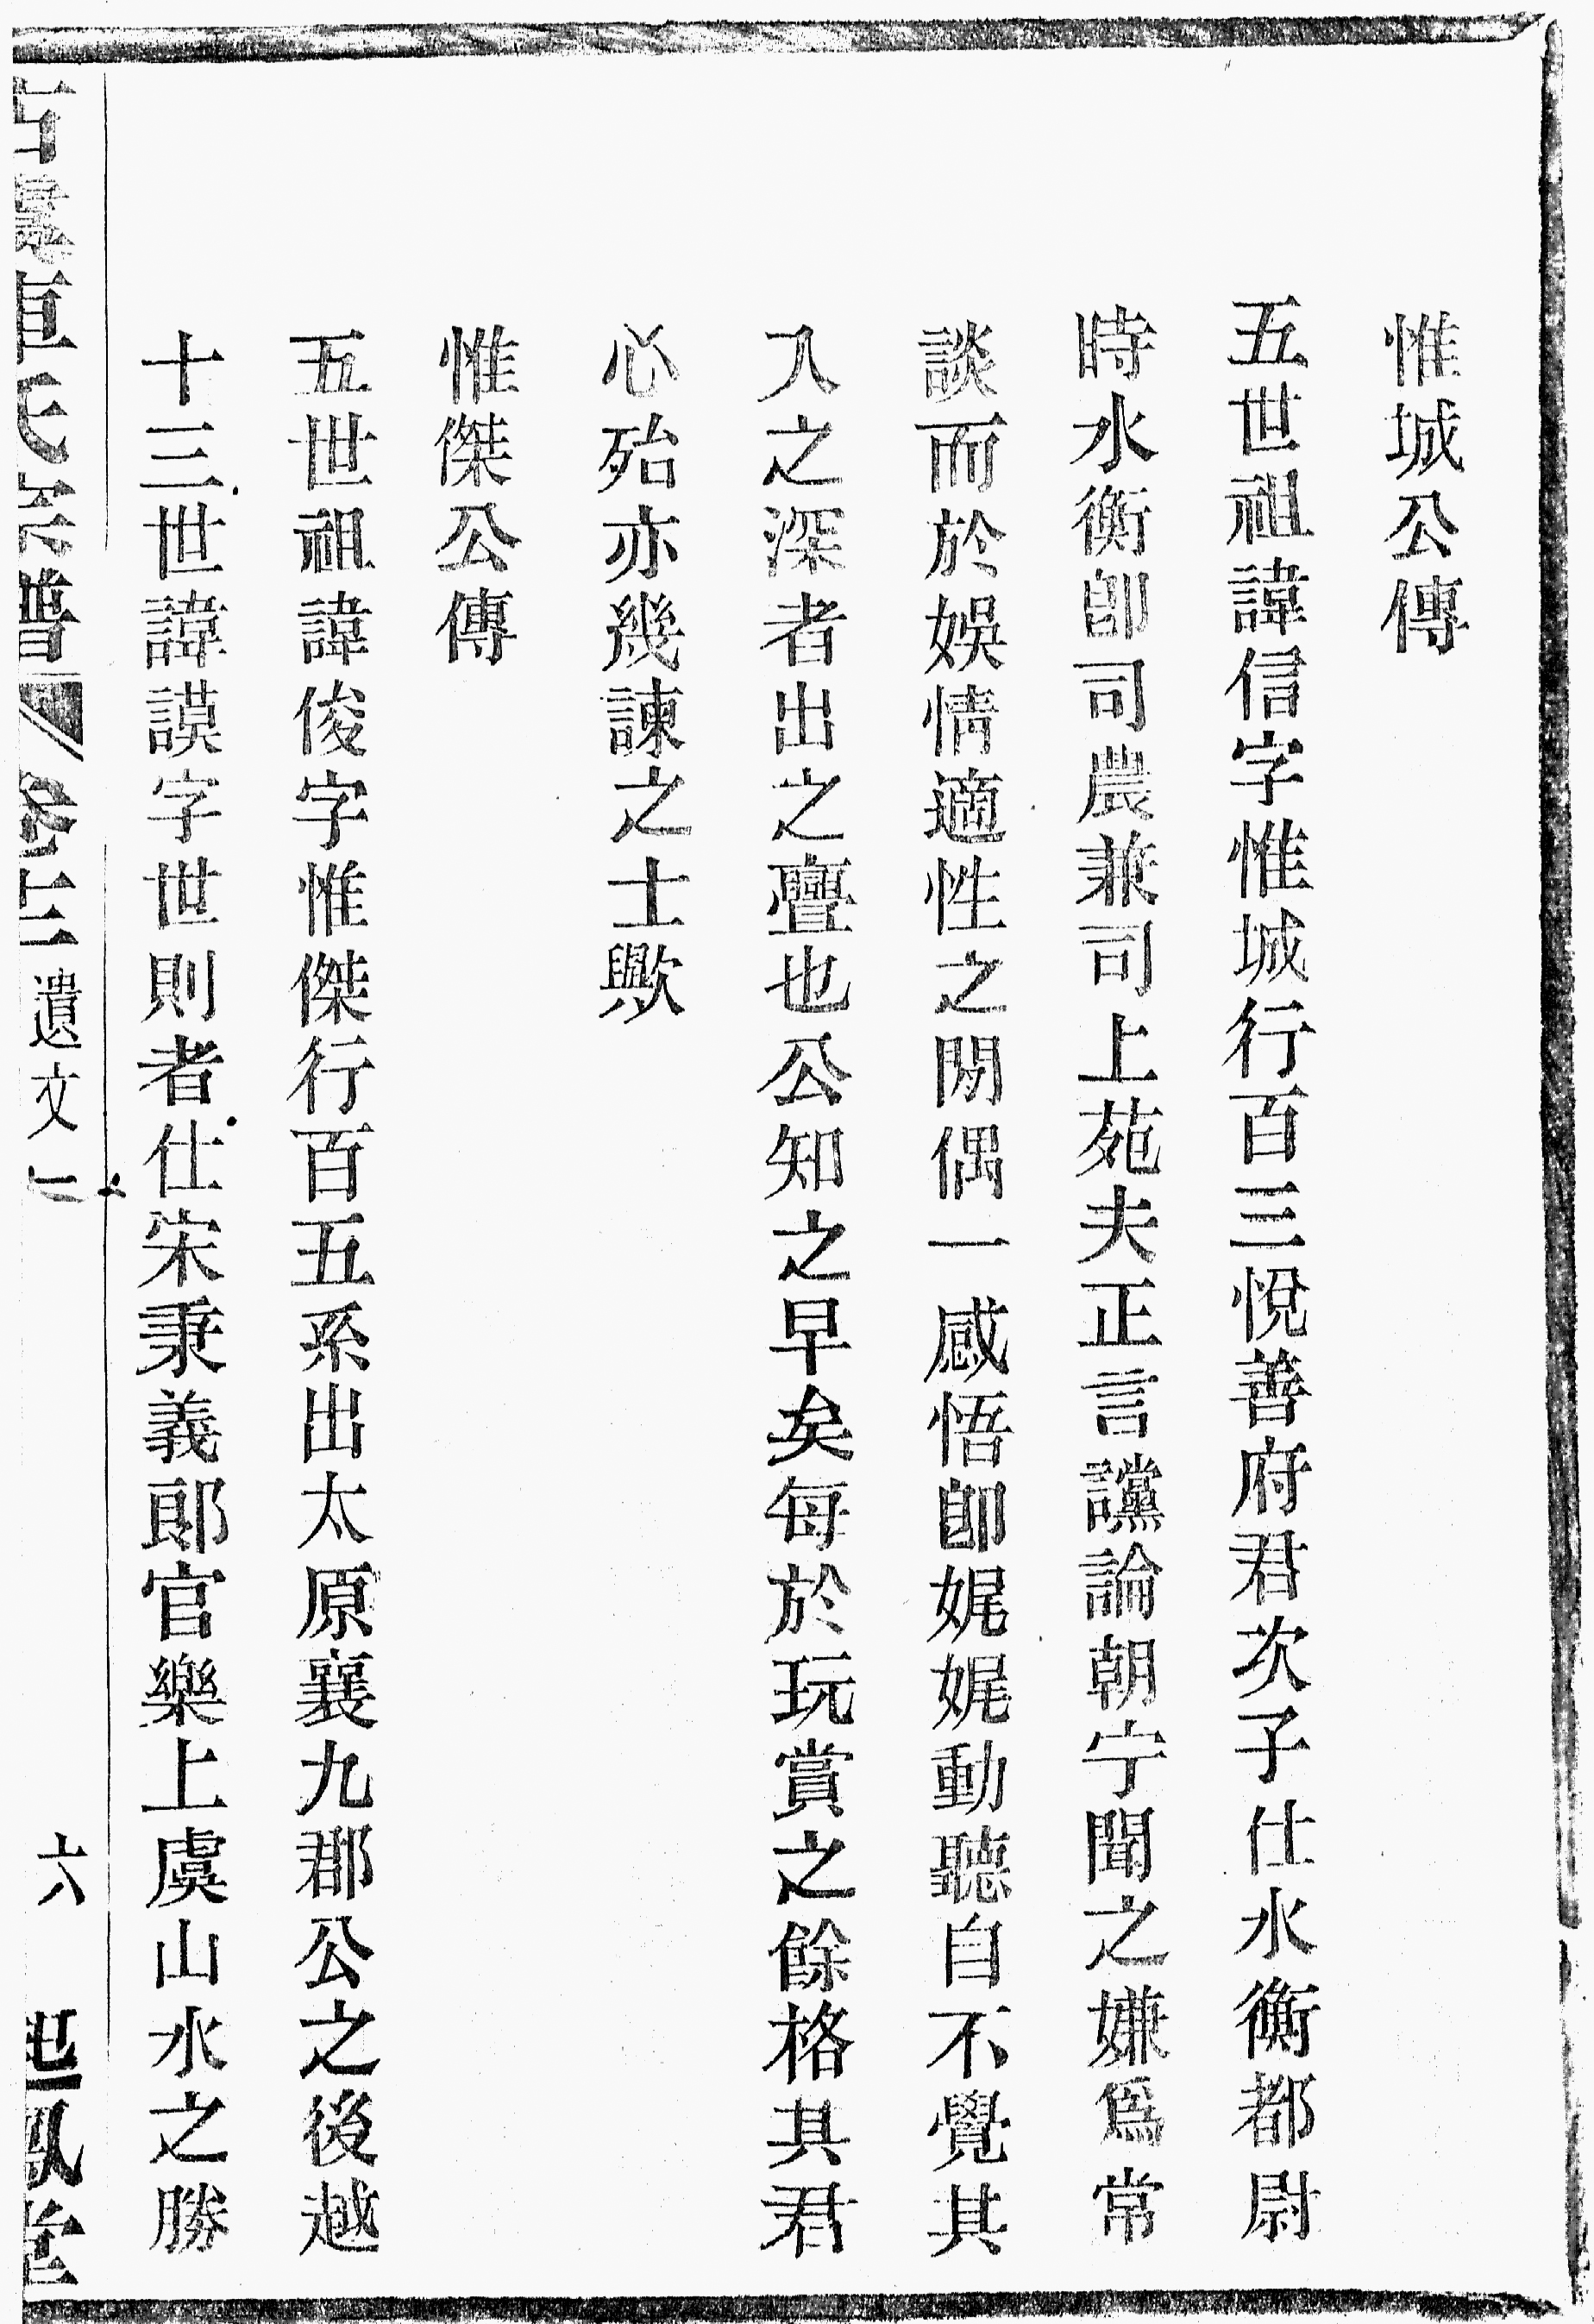 惟城公傳
五世祖諱信字惟城行百三悅善府君次子仕水衡都尉
時水衡卽司農兼司上苑夫正言讜論朝宁聞之嫌爲常
談而於娛情適性之閒偶一感悟卽娓娓動聽自不覺其
入之深者出之亹也公知之早矣每於玩賞之餘格其君
心殆亦幾諫之士歟
惟傑公傳
五世祖諱俊字惟傑行百五系出太原襄九郡公之後越
十三世諱謨字世則者仕宋秉義郎官樂上虞山水之勝
古虞車氏宗譜 卷十二 遺文一 六 起鳳堂